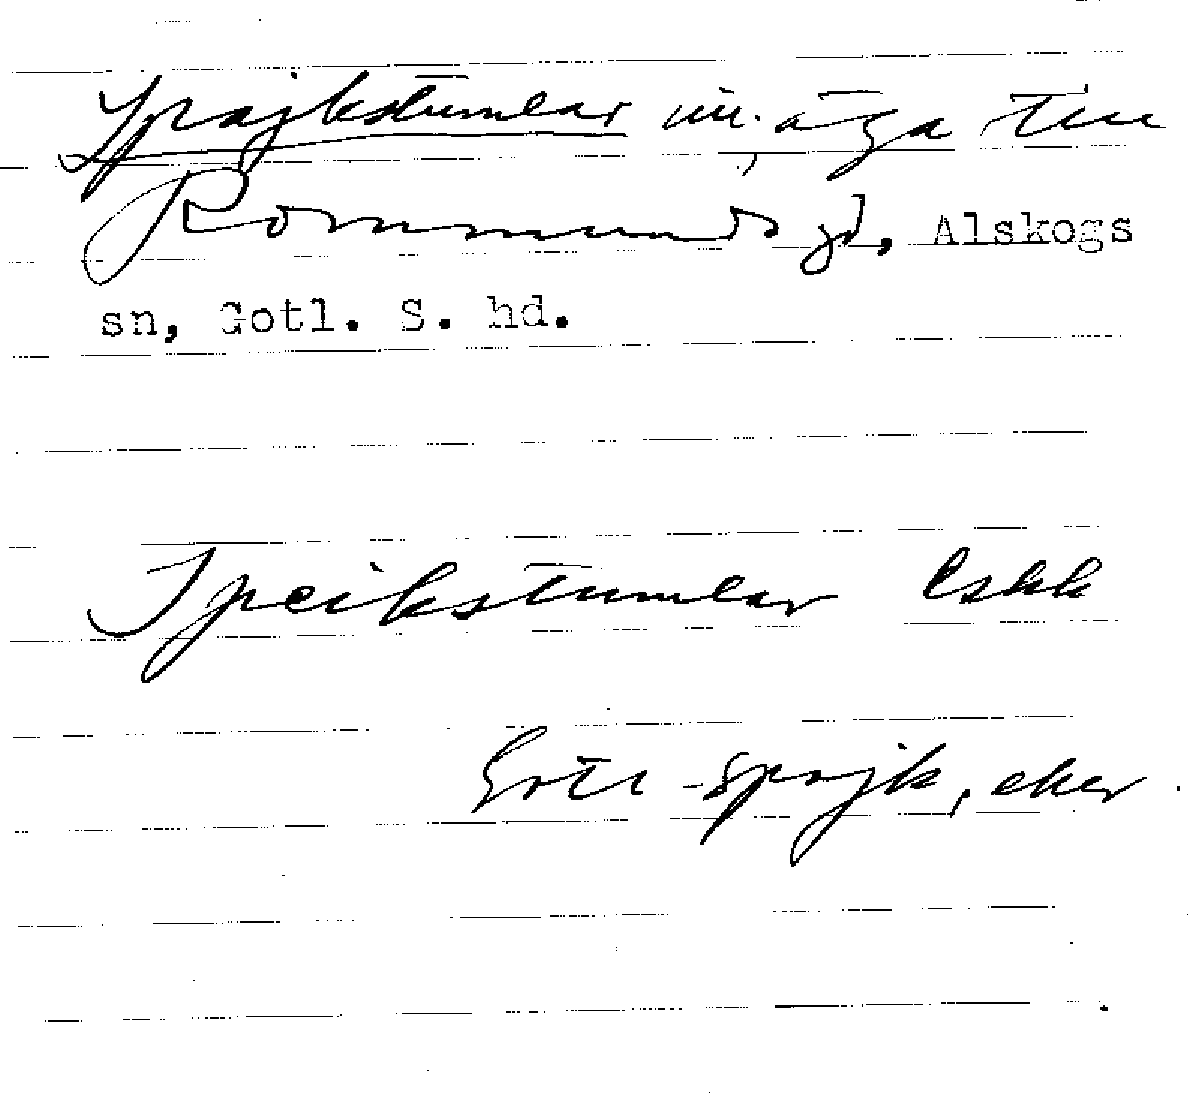 Spajkstumlar in. äga till
Rommunds gd, Alskogs
sn, Gotl. S. hd.
Speikstumlar Eskk
Gotl spajk, eker